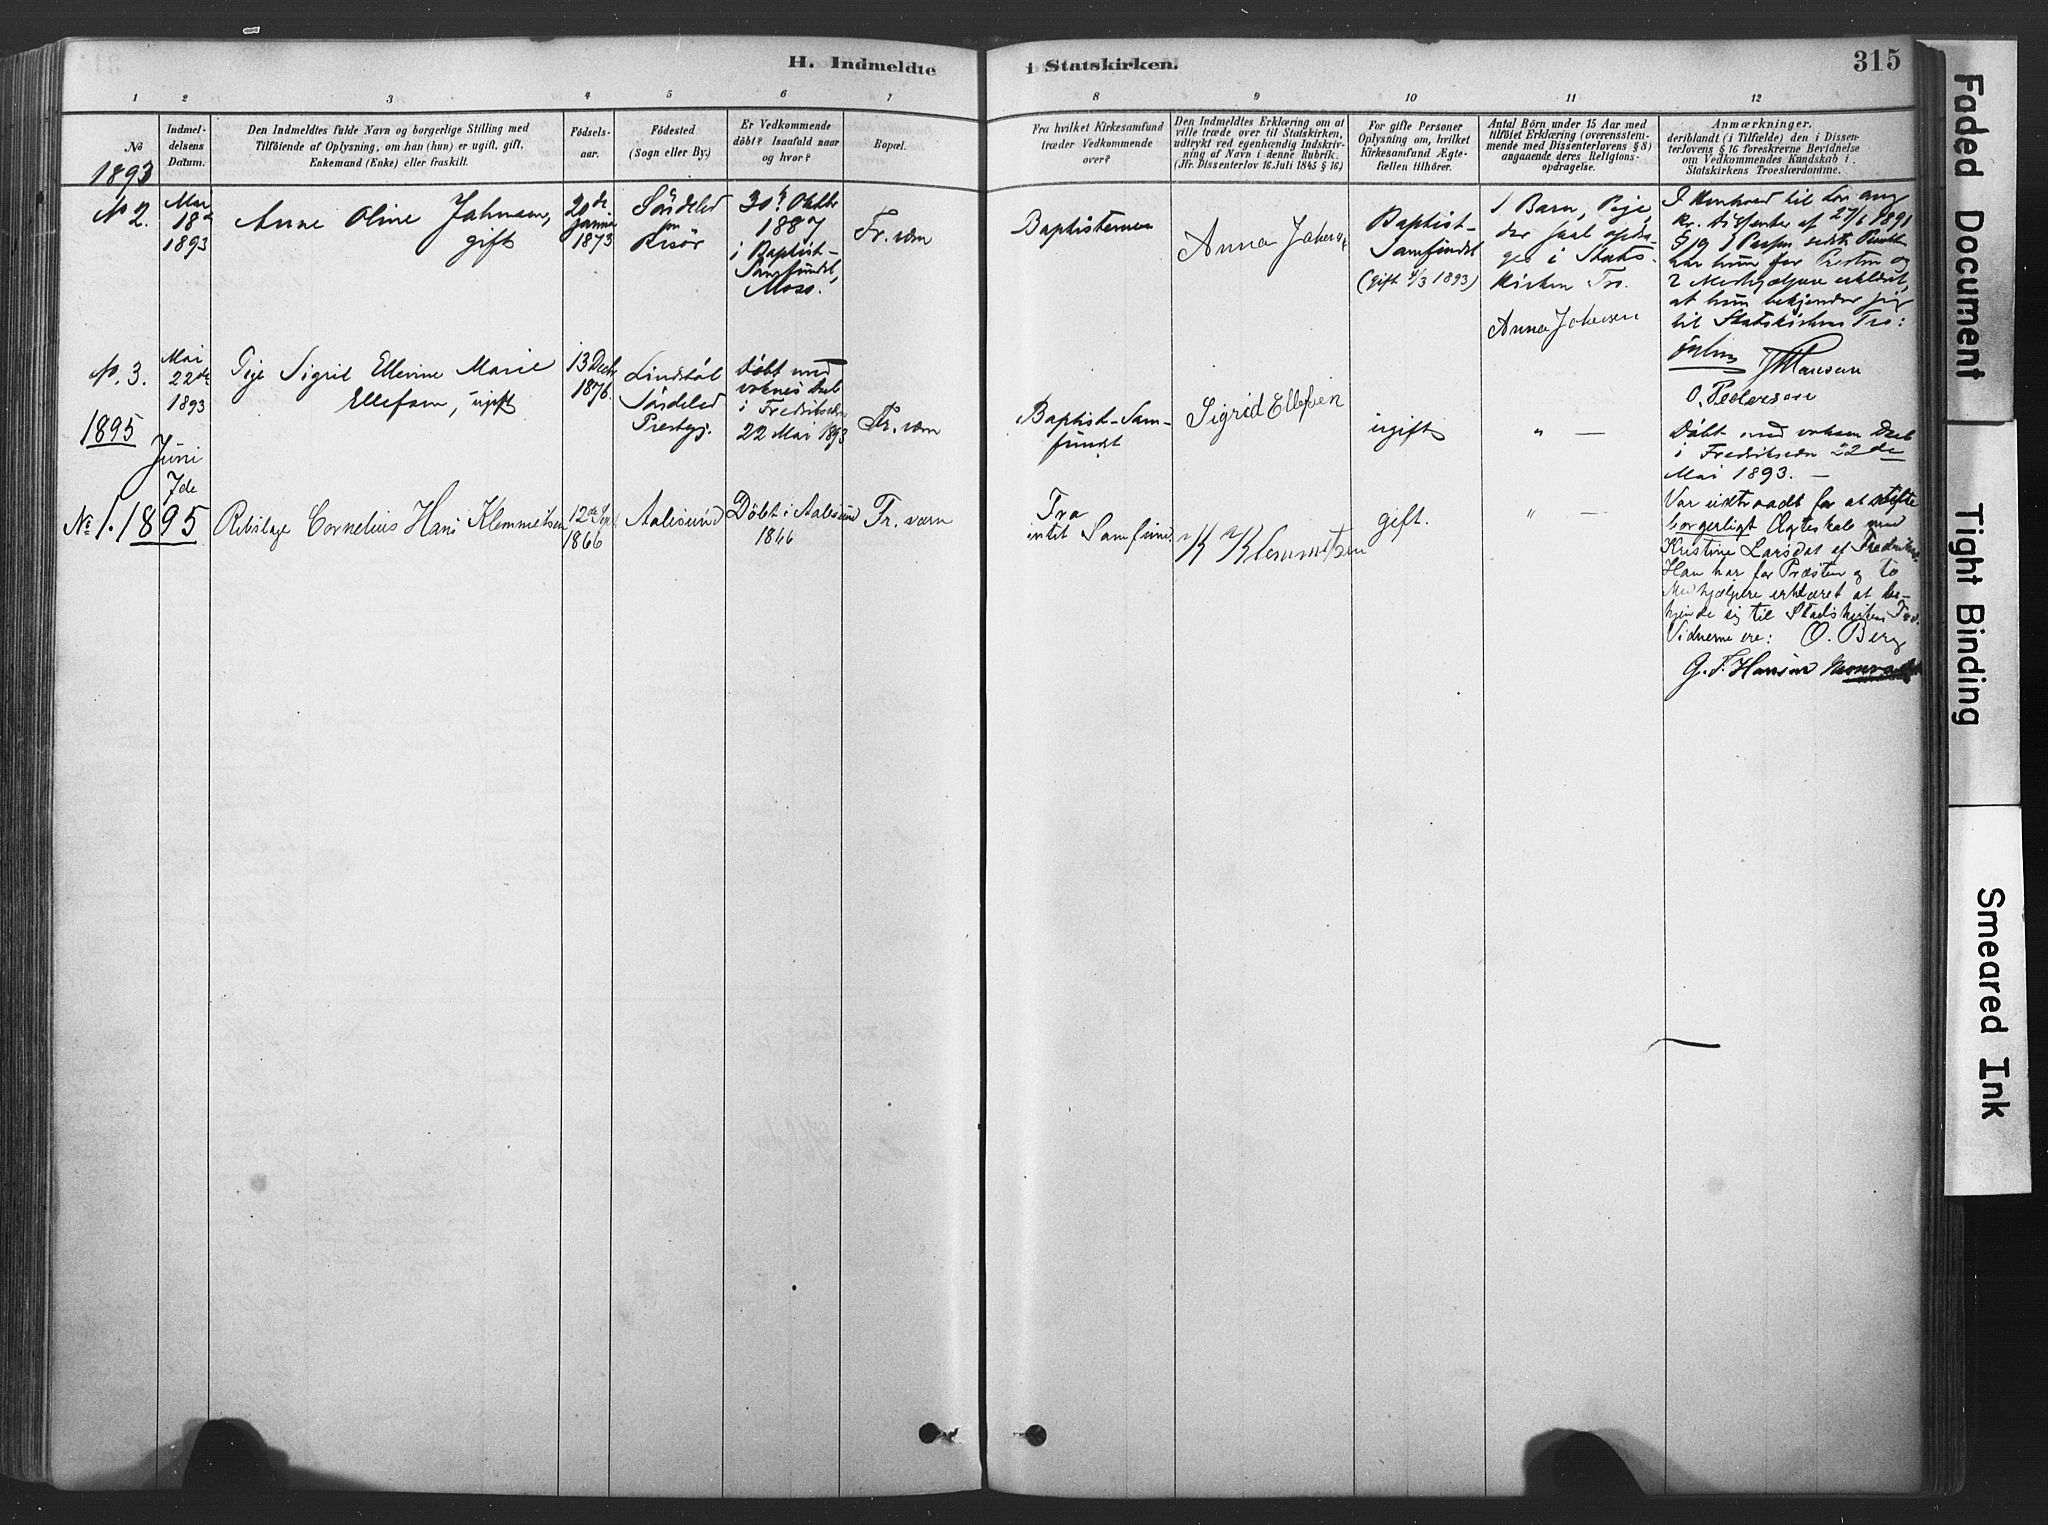 H. Indmeldte i Statskirken.
315
1 2 3 4 5 6 7 8 9 10 11 12
No
Indmel-
delsens
Datum.
Den Indmeldtes fulde Navn og borgerlige Stilling med
Tilföiende af Oplysning, om han (hun) er ugift, gift,
Enkemand (Enke) eller fraskilt.
Födsels-
aar.
Födested
(Sogn eller By.)
Er Vedkommende
döbt? Isaafald naar
og hvor?
Bopæl.
Fra hvilket Kirkesamfund
træder Vedkommende
over?
Den Indmeldtes Erklæring om at
ville træde over til Statskirken,
udtrykt ved egenhændig Indskriv-
ning af Navn i denne Rubrik.
(Jfr. Dissenterlov 16. Juli 1845 § 16.)
For gifte Personer
Oplysning om, hvilket
Kirkesamfund Ægte-
fællen tilhörer.
Antal Börn under 15 Aar med
tilföiet Erklæring (overensstem-
mende med Dissenterlovens § 8)
angaaende deres Religions-
opdragelse.
Anmærkninger,
deriblandt (i Tilfælde) den i Dissen-
terlovens § 16 foreskrevne Bevidnelse
om Vedkommendes Kundskab i
Statskirkens Troeslærdomme.
1893
No 2.
Mai
18de
1893
Anne Oline Johnsen,
gift
20de
Januar
1873
Söndeled
Risör
30te Oktbr
1887
i Baptist-
Samfundet,
Moss.
Fr. værn
Baptisterne
Anna Johnsen
Baptist-
Samfundet
(gift 4/3 1893)
1 Barn, Pige,
der skal opdra-
ges i Stats-
kirken Tro.
Anna Johnsen
I Henhold til Lov ang
kr. Dissenter af 27/6 1891
§ 19 1 Passus, sidste Punktum
har hun for Presten og
2 Medhjælpere erklæret,
at hun bekjender sig
til Statskirkens Tro:
Hansen
O. Pedersen
N. 3.
Mai
22de
1893
Pige Sigrid Ellevine Marie
Ellefsen, ugift
13 Decbr
1876.
Lindstöl
Söndeled
Prestegj.
Döbt med
voksnes Daab
i Fredriksværn
22 Mai 1893
Fr. værn
Baptist-Sam-
fundet
Sigrid Ellefsen
ugift
" —
Döbt med voksen Daab
i Fredriksværn 22de
Mai 1893. —
1895
Juni
7de
No 1. 1895
Cornelius Hans Klemmetsen
12de Sept.
1866
Aalesund
Döbt i Aalesund
1866
Fr. værn
Fra
intet Samfund.
K Klemmetsen
gift.
" —
Var udtraadt for at stifte
borgerligt Ægteskab med
Kristine Larsdat af Fredriksv.
Han har for Præsten og to
Medhjælpere erklæret at be-
kjende sig til Statskirkens Tro.
Vidnerne ere: O. Berg
G. F. Hansen
Faded Document
Tight Binding
Smeared Ink